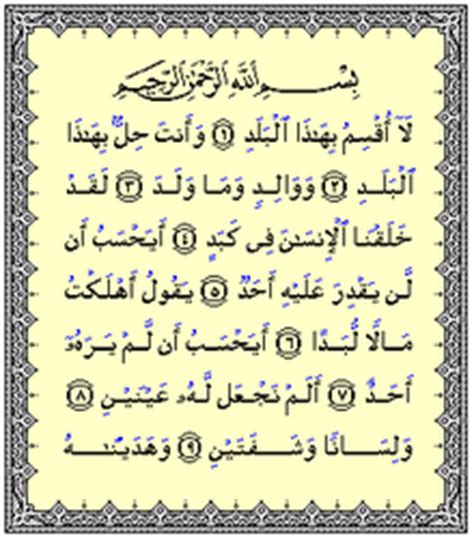 بِسْمِ ٱللَّهِ ٱلرَّحْمَٰنِ ٱلرَّحِيمِ
لَآ أُقْسِمُ بِهَٰذَا ٱلْبَلَدِ ۝١ وَأَنتَ حِلٌّۢ بِهَٰذَا
ٱلْبَلَدِ ۝٢ وَوَالِدٍ وَمَا وَلَدَ ۝٣ لَقَدْ
خَلَقْنَا ٱلْإِنسَٰنَ فِى كَبَدٍ ۝٤ أَيَحْسَبُ أَن
لَّن يَقْدِرَ عَلَيْهِ أَحَدٌ ۝٥ يَقُولُ أَهْلَكْتُ
مَالًا لُّبَدًا ۝٦ أَيَحْسَبُ أَن لَّمْ يَرَهُۥٓ
أَحَدٌ ۝٧ أَلَمْ نَجْعَل لَّهُۥ عَيْنَيْنِ ۝٨
وَلِسَانًا وَشَفَتَيْنِ ۝٩ وَهَدَيْنَٰهُ